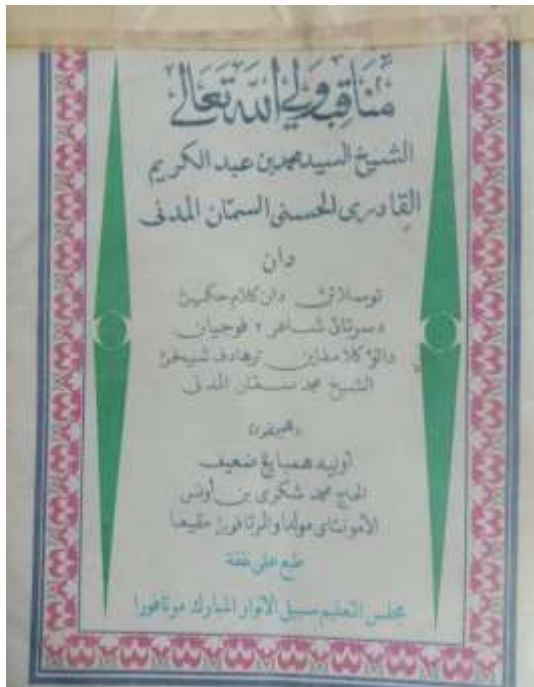 مناقب ولي الله تعالى
الشيخ السيد محمد بن عبد الكريم
القادرى الحسنى السمّان المدنى
دان
توسلاتن دان كلام حكمهن
دسرتائى شاعر ٢ فوجيان
داتوء كلامفاين ترهادف شيخن
الشيخ محمد سمان المدنى
دهيمفون
أوليه همباڠ ضعيف
الحاج محمد شكرى بن أونس
الأمونتاى مولدا والمرتافورا مقيما
طبع على نفقة
مجلس التعليم سبيل الأنوار المبارك مرتافورا